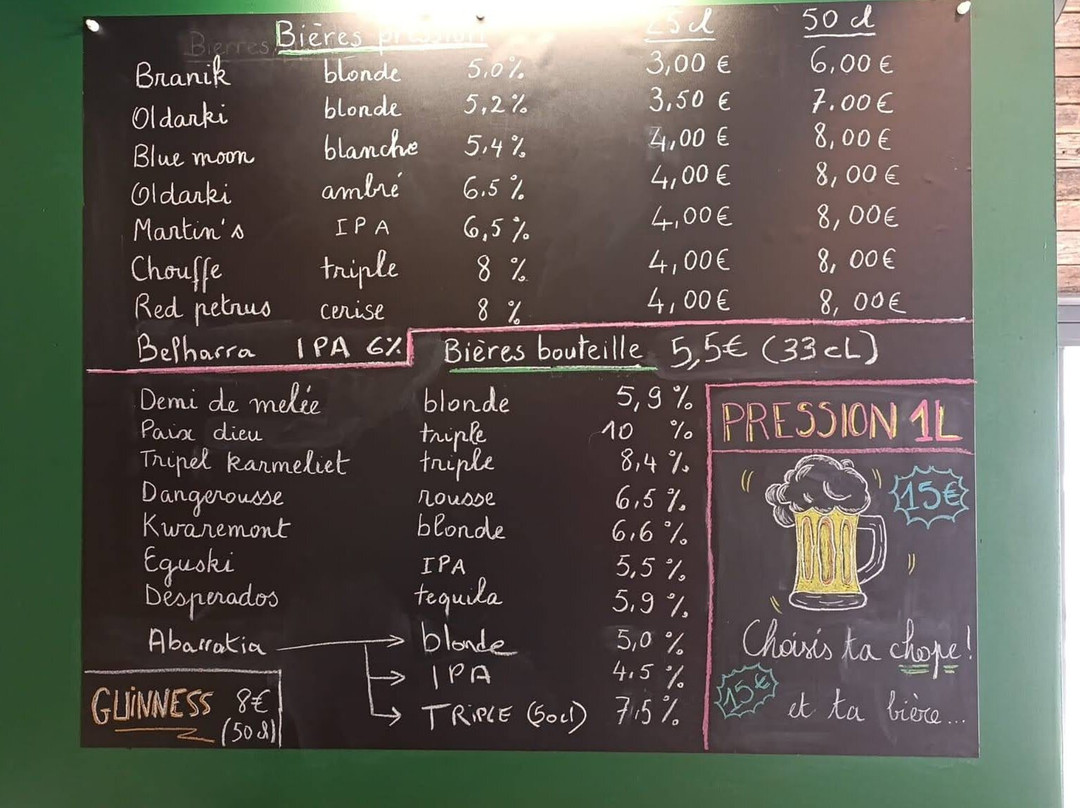 Bierres Bières pression 25cl 50 cl
Branik blonde 5,0% 3,00 € 6,00 €
Oldarki blonde 5,2% 3,50 € 7.00 €
Blue moon blanche 5,4% 4,00 € 8,00 €
Oldarki ambré 6.5 % 4,00 € 8,00 €
Martin's IPA 6,5 % 4,00 € 8,00 €
Chouffe triple 8 % 4,00 € 8,00 €
Red petrus cerise 8 % 4,00 € 8,00 €
Belharra IPA 6% Bières bouteille 5,5€ (33 cL)
Demi de melée blonde 5,9 %
Paix dieu triple 10 %
Tripel karmeliet triple 8,4 %
Dangerousse rousse 6,5 %
Kwaremont blonde 6,6 %
Eguski IPA 5,5 %
Desperados tequila 5,9 %
Abarratia blonde 5,0 %
IPA 4.5 %
TRIPLE (50cl) 7,5 %
GUiNNESS 8€
(50 cl)
PRESSION 1L
15€
Choisis ta chope!
15€
et ta bière...